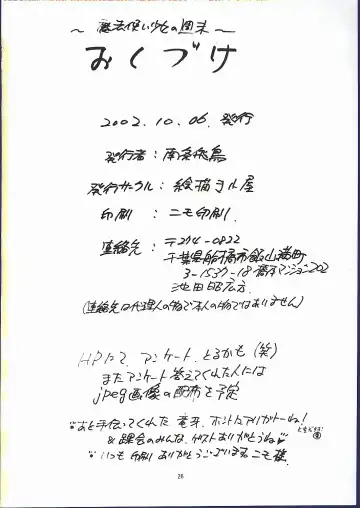 ～魔法使い少女の週末～
おくづけ
2002.10.06.発行
発行者：南条飛鳥
発行サークル：絵描きル屋
印刷：ニモ印刷
連絡先：〒274-0822
千葉県船橋市飯山満町
3-1537-18
池田
(連絡先は代理人の物で本人の物ではありません)
HPにて、アンケート、とるかも(笑)
またアンケート答えてくれた人には
jpeg画像の配布を予定
あと手伝ってくれた
ホントにアリガトーね！
のみんな、ゲストありがとうね
いつも印刷ありがとうございます。ニモ様。
26